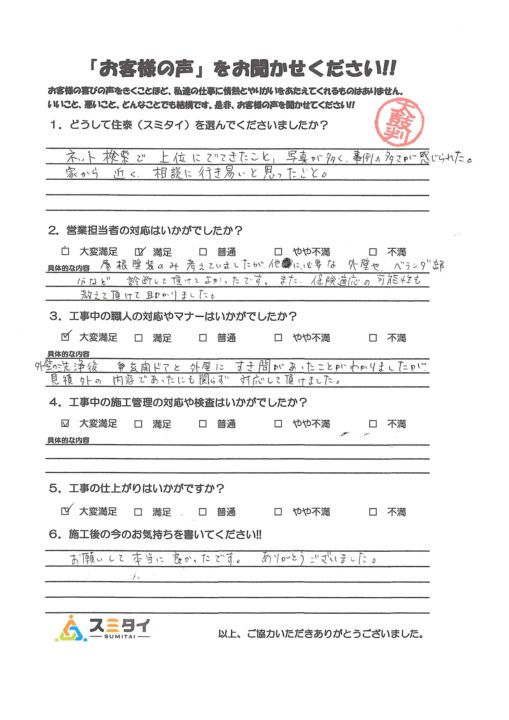 「お客様の声」をお聞かせください!!
お客様の喜びの声をきくことほど、私達の仕事に情熱とやりがいをあたえてくれるものはありません。
いいこと、悪いこと、どんなことでも結構です。是非、お客様の声を聞かせてください!!
太鼓判
1．どうして住泰（スミタイ）を選んでくださいましたか？
ネット検索で 上位にでてきたこと、写真が多く、事例の多さが感じられた。
家から 近く、相談に行き易いと思ったこと。
2．営業担当者の対応はいかがでしたか？
□ 大変満足 ☑ 満足 □ 普通 □ やや不満 □ 不満
具体的な内容 屋根塗装のみ考えていましたが他に必要な 外壁や ベランダ部
分など 診断して頂けてよかったです。また、保険適応の可能性も
教えて頂けて助かりました。
3．工事中の職人の対応やマナーはいかがでしたか？
☑ 大変満足 □ 満足 □ 普通 □ やや不満 □ 不満
具体的な内容
外壁の洗浄後、玄関ドアと外壁に すき間があったことがわかりましたが
見積外の 内容であったにも関らず 対応して頂けました。
4．工事中の施工管理の対応や検査はいかがでしたか？
☑ 大変満足 □ 満足 □ 普通 □ やや不満 □ 不満
具体的な内容
5．工事の仕上がりはいかがですか？
☑ 大変満足 □ 満足 □ 普通 □ やや不満 □ 不満
6．施工後の今のお気持ちを書いてください!!
お願いして 本当に 良かったです。 ありがとうございました。
スミタイ
SUMITAI
以上、ご協力いただきありがとうございました。